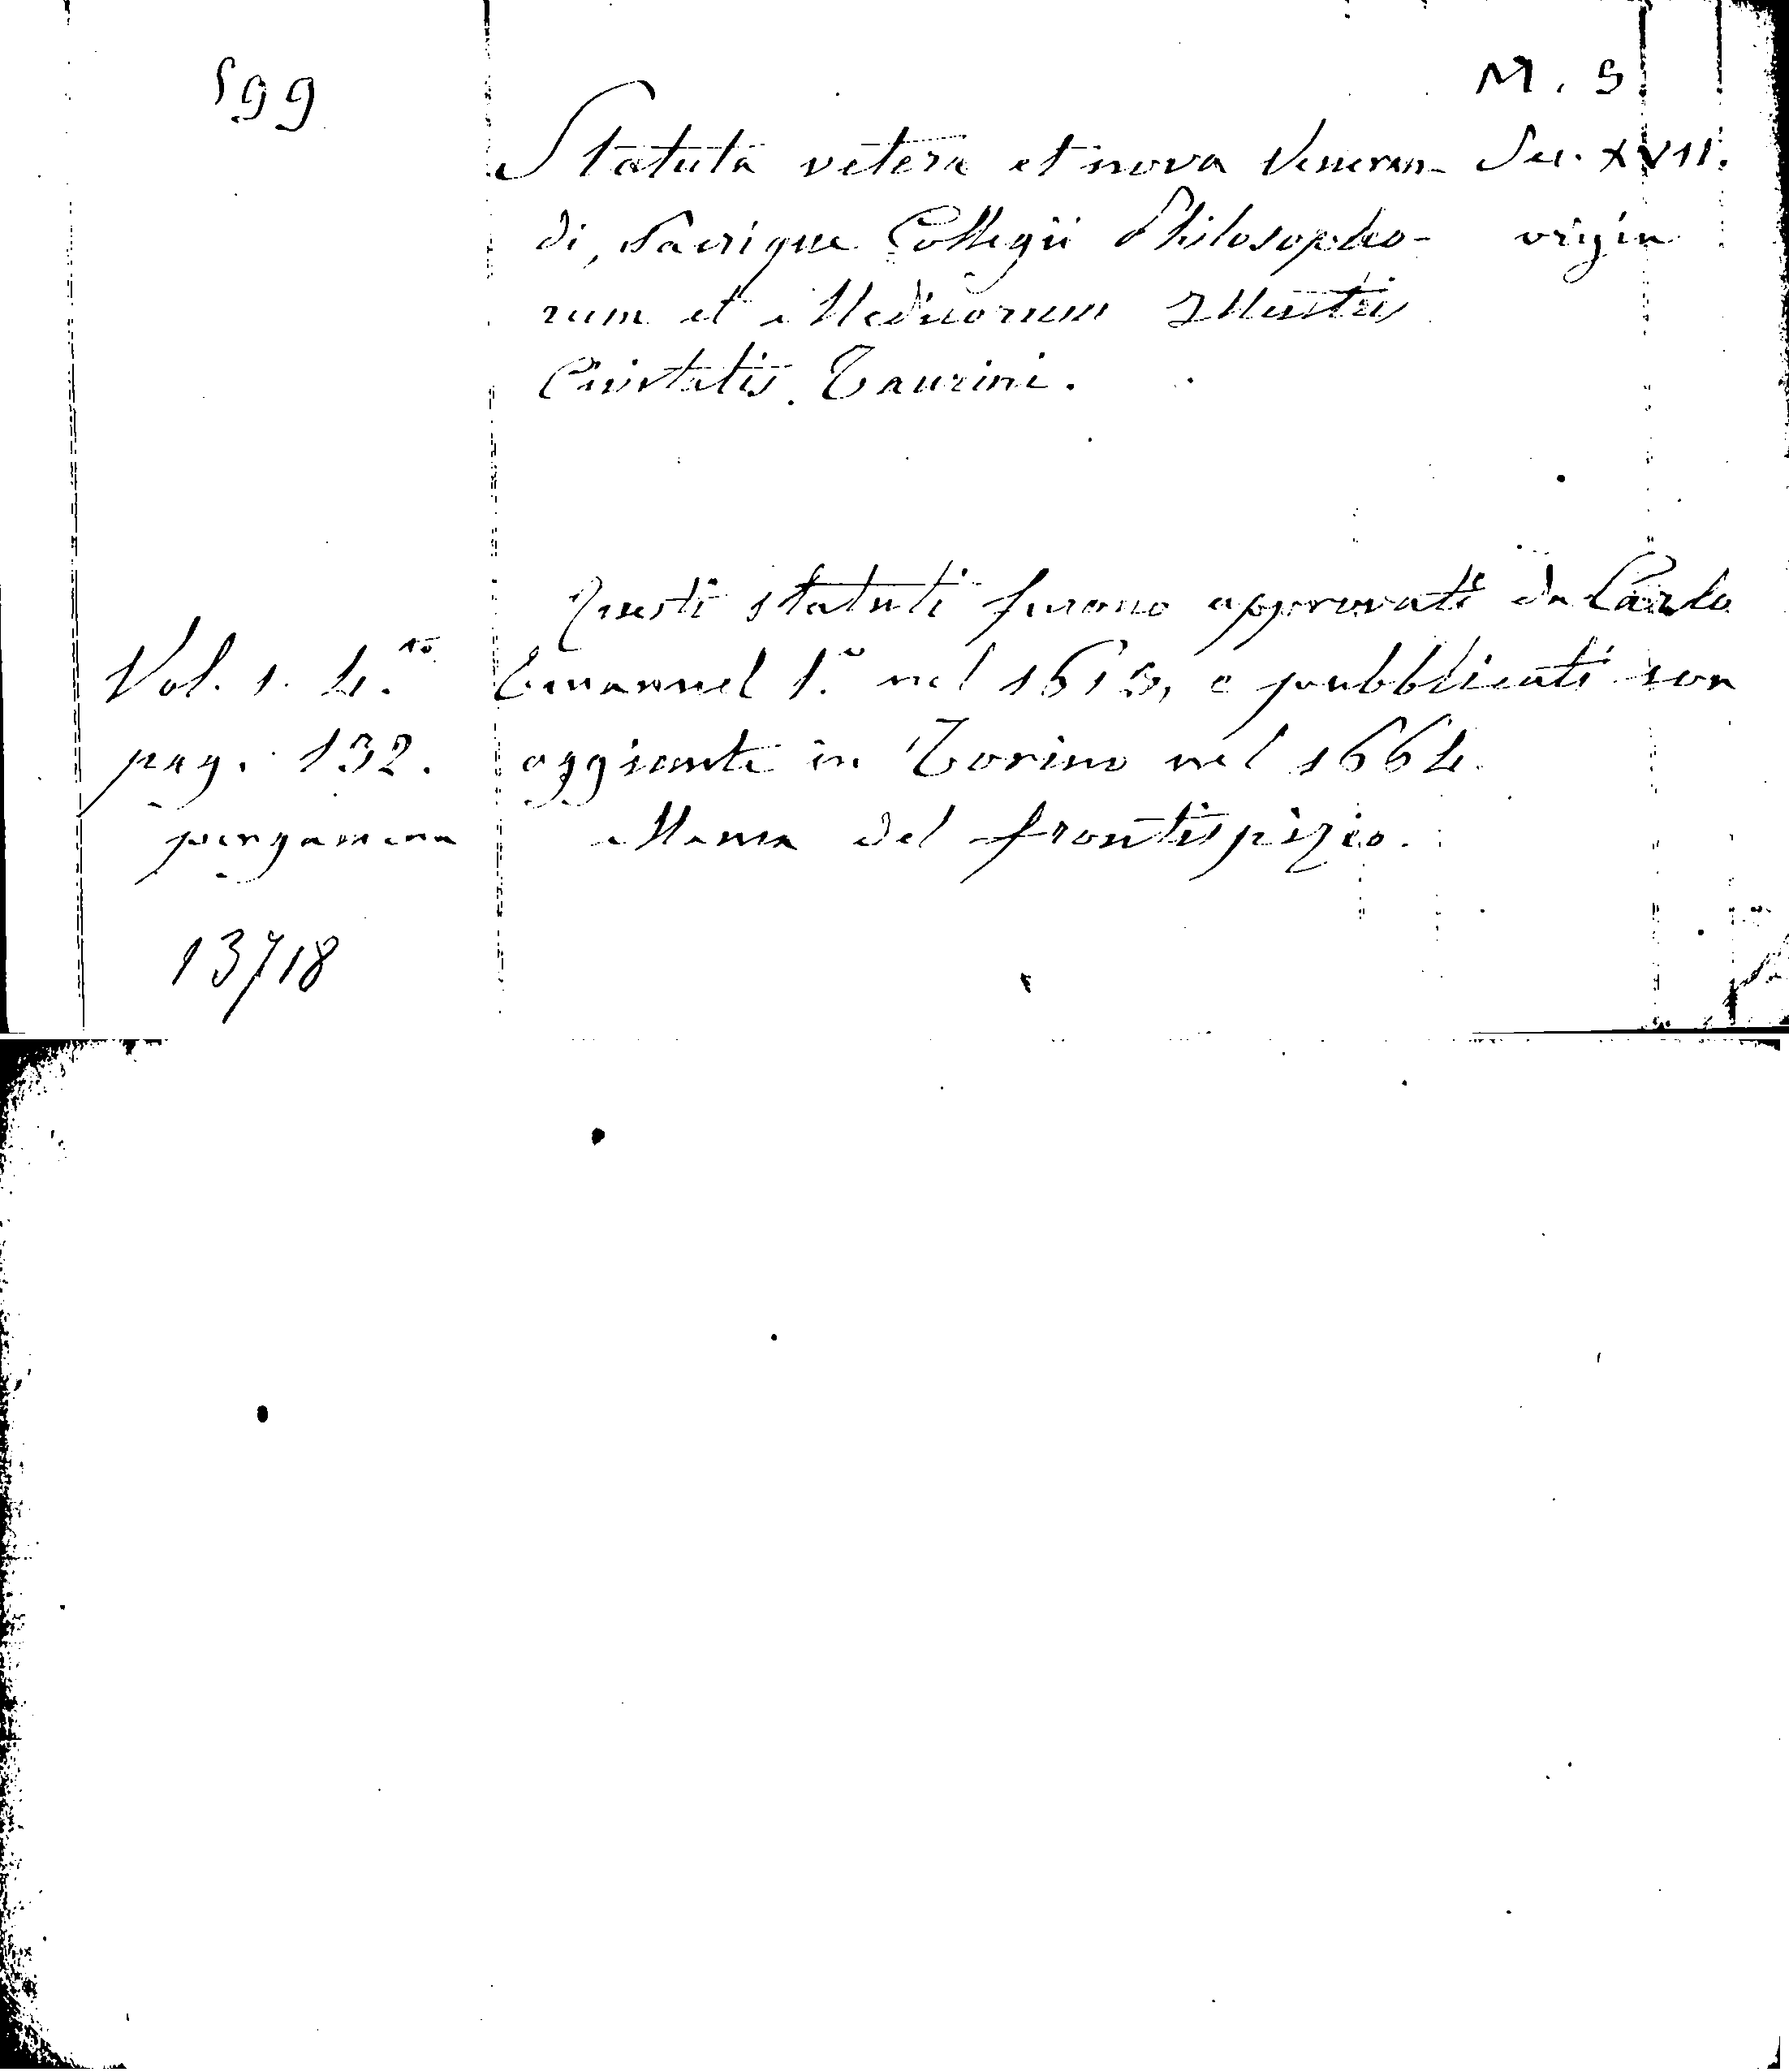 599
M. S
Statuta vetera et nova Veneran- Sec. XVII.
di, Sacrique Collegii Philosopho- origin
rum et Medicorum Illustris
Civitatis Taurini.
Questi statuti furono approvati da Carlo
Vol. 1. 4.to Emanuel 1.° nel 1613, e pubblicati con
pag. 132. aggiunte in Torino nel 1664.
pergamena Manca del frontispizio.
13718